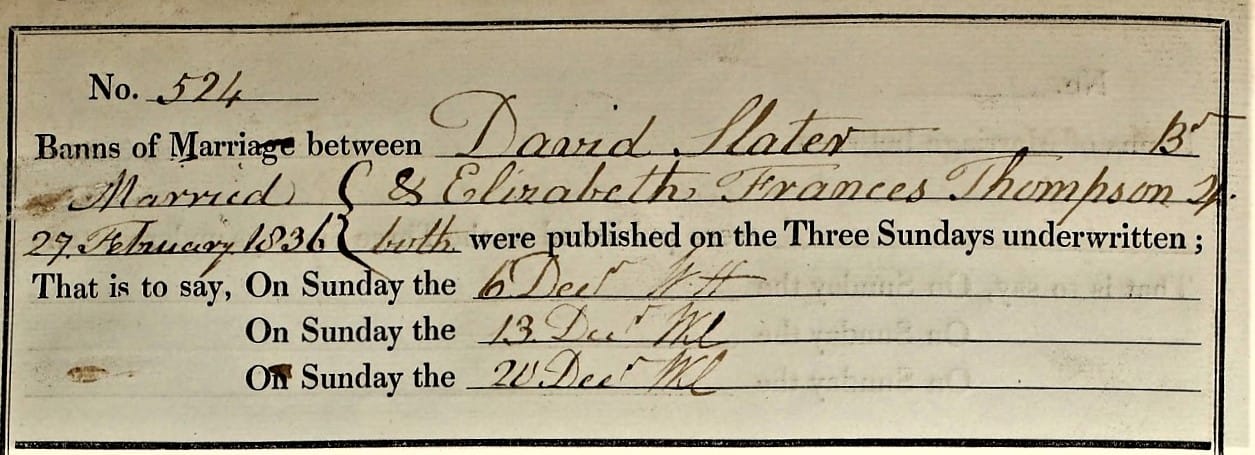 No. 524
Banns of Marriage between David Slater Br
Married & Elizabeth Frances Thompson
27 February 1836 both were published on the Three Sundays underwritten;
That is to say, On Sunday the 6 Decr
On Sunday the 13 Decr
On Sunday the 20 Decr